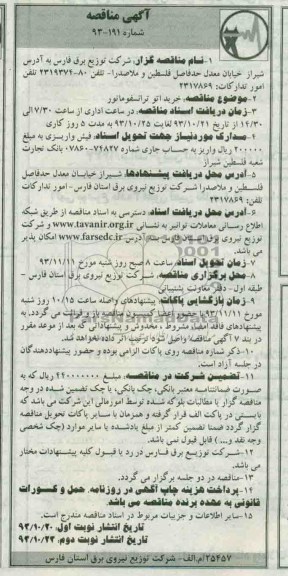 آگهی مناقصه
شماره ۱۹۱-۹۳
۱-نام مناقصه گزار: شرکت توزیع برق فارس به آدرس
شیراز خیابان معدل حدفاصل فلسطین و ملاصدرا- تلفن ۸۰-۲۳۱۹۳۷۴ تلفن
امور تدارکات: ۲۳۱۷۸۶۹
۲-موضوع مناقصه: خرید اتو ترانسفورماتور
۳-زمان دریافت اسناد مناقصه: در ساعت اداری از ساعت ۷/۳۰ الی
۱۴/۳۰ از تاریخ ۹۳/۱۰/۲۱ لغایت ۹۳/۱۰/۲۵ به مدت ۵ روز کاری
۴-مدارک موردنیاز جهت تحویل اسناد: فیش واریزی به مبلغ
۲۰۰۰۰۰ ریال واریز به حساب جاری شماره ۰۷۸۶۰-۷۴۸۲۷ بانک تجارت
شعبه فلسطین شیراز
۵-آدرس محل دریافت پیشنهادها: شیراز خیابان معدل حدفاصل
فلسطین و ملاصدرا شرکت توزیع نیروی برق استان فارس- امور تدارکات
تلفن: ۲۳۱۷۸۶۹
۶-آدرس محل دریافت اسناد: دسترسی به اسناد مناقصه از طریق شبکه
اطلاع رسانی معاملات توانیر به نشانی www.tavanir.org.ir و شرکت
توزیع نیروی برق استان فارس به آدرس www.farsedc.ir امکان پذیر
می باشد.
۷-زمان تحویل اسناد: ساعت ۸ صبح روز شنبه مورخ ۹۳/۱۱/۱۱
۸-محل برگزاری مناقصه: شرکت توزیع نیروی برق استان فارس -
طبقه اول- دفتر معاونت پشتیبانی
۹-زمان بازگشایی پاکات: پیشنهادهای واصله ساعت ۱۰/۱۵ روز شنبه
مورخ ۹۳/۱۱/۱۱ با حضور اعضا کمیسیون مناقصه باز و قرائت می گردد. به
پیشنهادهای فاقد امضا، مشروط، مخدوش و پیشنهاداتی که بعد از موعد مقرر
در بند ۷ آگهی مناقصه واصل شود ترتیب اثر داده نخواهد شد.
۱۰-ذکر شماره مناقصه روی پاکات الزامی بوده و حضور پیشنهاددهندگان
در جلسه آزاد است.
۱۱-تضمین شرکت در مناقصه: مبلغ ۴۴۰۰۰۰۰۰۰ ریال که به
صورت ضمانتنامه معتبر بانکی، چک بانکی، یا چک تضمین شده در وجه
مناقصه گزار یا مطالبات بلوکه شده توسط امورمالی این شرکت می باشد که
بایستی در پاکت الف قرار گرفته و همزمان با سایر پاکات تحویل مناقصه
گزار گردد ضمنا تضمین کمتر از مبلغ یادشده یا سایر موارد (چک شخصی
وجه نقد و...) قابل قبول نمی باشد.
۱۲-شرکت توزیع برق فارس در رد یا قبول کلیه پیشنهادات مختار
می باشد.
۱۳-مناقصه در دو جلسه برگزار می گردد.
۱۴-پرداخت هزینه چاپ آگهی در روزنامه، حمل و کسورات
قانونی به عهده برنده مناقصه می باشد
۱۵-سایر اطلاعات و جزییات مربوط در اسناد مناقصه مندرج است.
تاریخ انتشار نوبت اول: ۹۳/۱۰/۲۰
تاریخ انتشار نوبت دوم: ۹۳/۱۰/۲۳
۲۵۴۵۷/م.الف- شرکت توزیع نیروی برق استان فارس